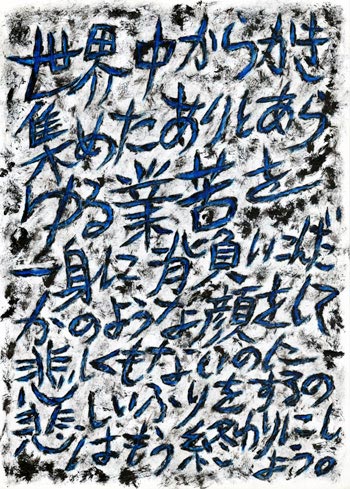 世界中からかき
集めたありとあら
ゆる業苦を
一身に背負いこんだ
かのような顔をして
悲しくもないのに
悲しいふりをするの
はもう終わりにし
よう。